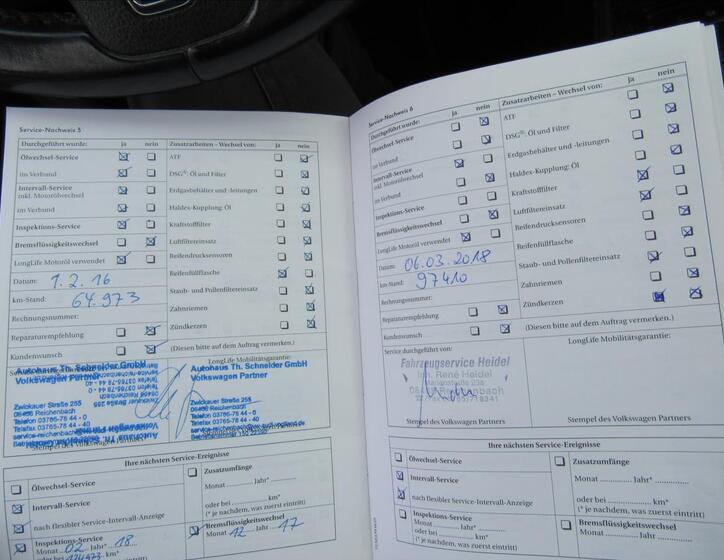 Service-Nachweis 5
Durchgeführt wurde: ja nein
Ölwechsel-Service
im Verbund
Intervall-Service
inkl. Motorölwechsel
im Verbund
Inspektions-Service
Bremsflüssigkeitswechsel
LongLife Motoröl verwendet
Datum: 1.2.16
km-Stand: 64.973
Rechnungsnummer:
Reparaturempfehlung
Kundenwunsch
Zusatzarbeiten – Wechsel von: ja nein
ATF
DSG®: Öl und Filter
Erdgasbehälter und -leitungen
Haldex-Kupplung: Öl
Kraftstofffilter
Luftfiltereinsatz
Reifendrucksensoren
Reifenfüllflasche
Staub- und Pollenfiltereinsatz
Zahnriemen
Zündkerzen
(Diesen bitte auf dem Auftrag vermerken.)
LongLife Mobilitätsgarantie:
Autohaus Th. Schneider GmbH
Volkswagen Partner
Zwickauer Straße 255
08468 Reichenbach
Telefon 03765-78 44 - 0
Telefax 03765-78 44 - 40
Autohaus Th. Schneider GmbH
Volkswagen Partner
Zwickauer Straße 255
08468 Reichenbach
Telefon 03765-78 44 - 0
Telefax 03765-78 44 - 40
Stempel des Volkswagen Partners
Ihre nächsten Service-Ereignisse
Ölwechsel-Service
Intervall-Service
nach flexibler Service-Intervall-Anzeige
Inspektions-Service
Monat 02 Jahr* 18
Zusatzumfänge
Monat Jahr*
oder bei km*
(* je nachdem, was zuerst eintritt)
Bremsflüssigkeitswechsel
Monat 12 Jahr 17
Service-Nachweis 6
Durchgeführt wurde: ja nein
Ölwechsel-Service
im Verbund
Intervall-Service
inkl. Motorölwechsel
im Verbund
Inspektions-Service
Bremsflüssigkeitswechsel
LongLife Motoröl verwendet
Datum: 06.03.2018
km-Stand: 97410
Rechnungsnummer:
Reparaturempfehlung
Kundenwunsch
Zusatzarbeiten – Wechsel von: ja nein
ATF
DSG®: Öl und Filter
Erdgasbehälter und -leitungen
Haldex-Kupplung: Öl
Kraftstofffilter
Luftfiltereinsatz
Reifendrucksensoren
Reifenfüllflasche
Staub- und Pollenfiltereinsatz
Zahnriemen
Zündkerzen
(Diesen bitte auf dem Auftrag vermerken.)
Service durchgeführt von:
LongLife Mobilitätsgarantie:
Fahrzeugservice Heidel
Inh. René Heidel
Stempel des Volkswagen Partners
Ihre nächsten Service-Ereignisse
Ölwechsel-Service
Intervall-Service
nach flexibler Service-Intervall-Anzeige
Inspektions-Service
Monat Jahr*
oder bei km*
(* je nachdem, was zuerst eintritt)
Zusatzumfänge
Monat Jahr*
oder bei km*
(* je nachdem, was zuerst eintritt)
Bremsflüssigkeitswechsel
Monat Jahr